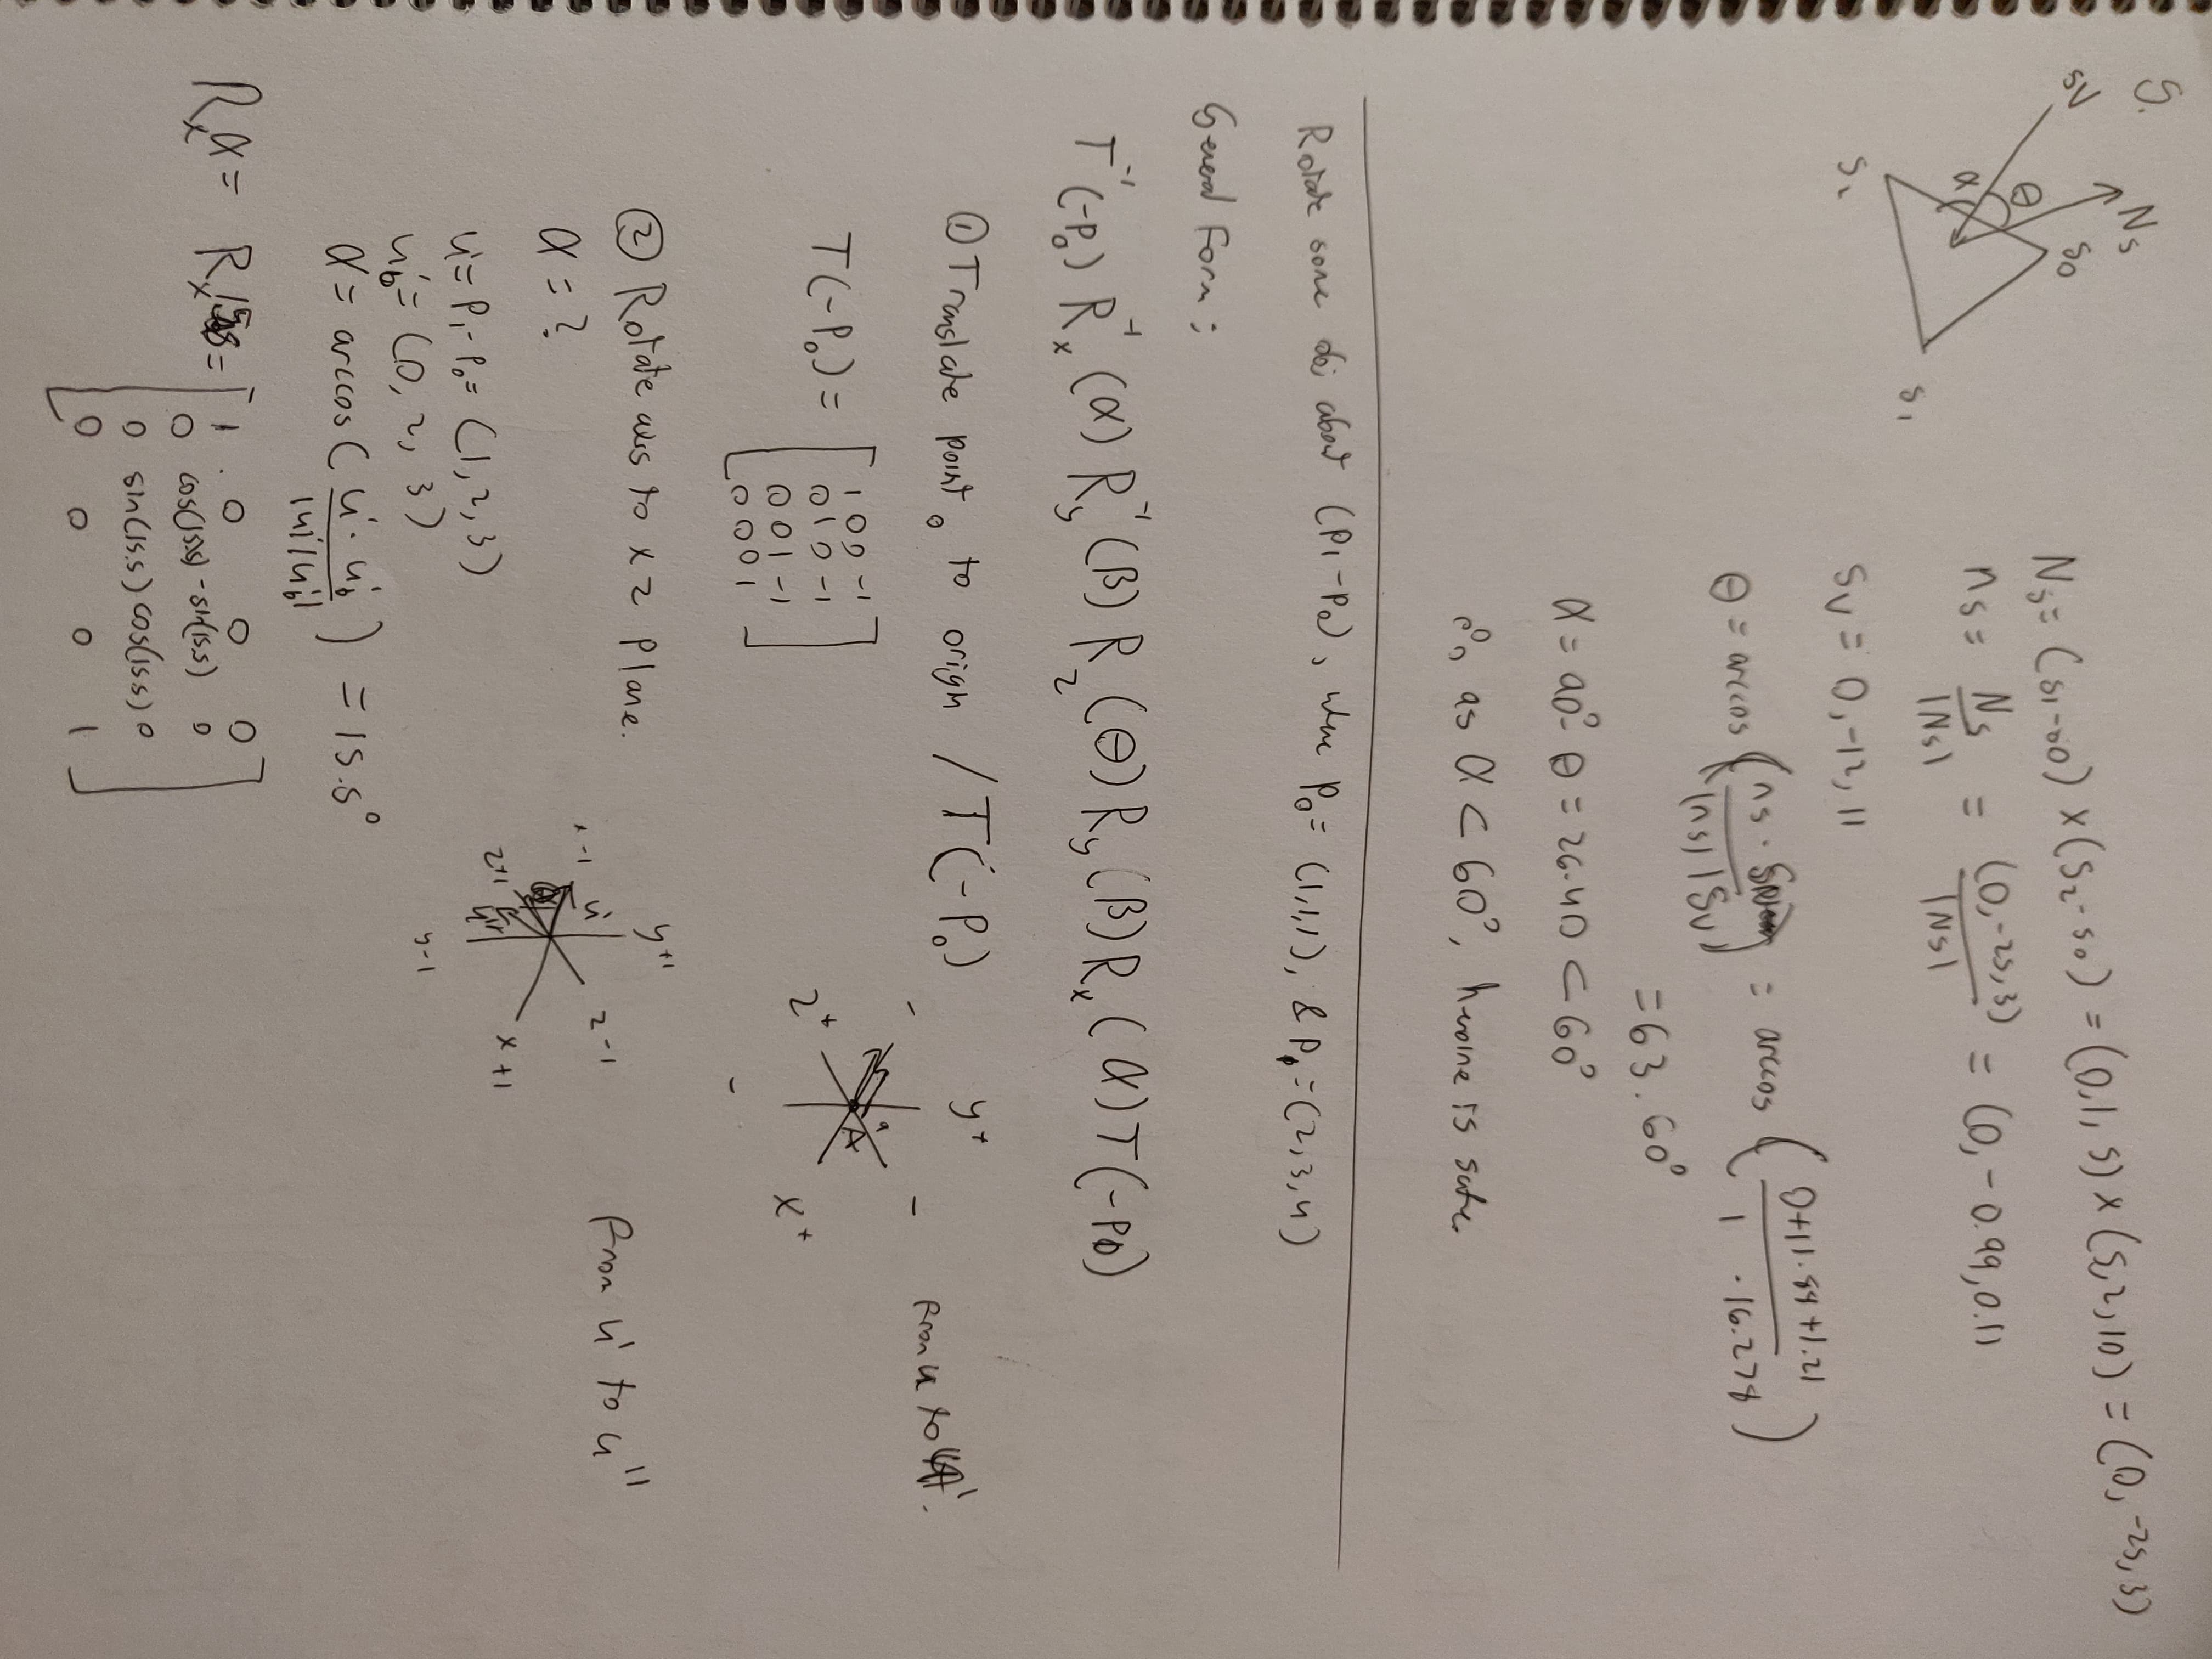 5.
Sv
Ns
θ
α
S0
S2
S1
Ns = (S1-S0) x (S2-S0) = (0,1,5) x (5,2,10) = (0,-25,3)
ns = Ns / |Ns| = (0,-25,3) / |Ns| = (0,-0.99,0.11
Sv = 0,-12,11
θ = arccos( ns · / |ns| |Sv| ) = arccos( 0+11.88+1.21 / 1 · 16.278 )
= 63.60°
α = 90° - θ = 26.40 < 60°
∴, as α < 60°, heroine is safe.
Rotate some obj about (P1-P0), where P0 = (1,1,1), & P1 = (2,3,4)
General Form:
T⁻¹(-P0) Rx⁻¹(α) Ry⁻¹(β) Rz(θ) Ry(β) Rx(α) T(-P0)
① Translate point 0 to origin / T(-P0)
From u to u'.
T(-P0) = [
1 0 0 -1
0 1 0 -1
0 0 1 -1
0 0 0 1
]
y+
z+
x+
② Rotate axis to xz plane.
From u' to u''
α = ?
u' = P1-P0 = (1,2,3)
u'b = (0,2,3)
α = arccos( u' · u'b / |u'| |u'b| ) = 15.5°
x-1
y+1
z-1
z+1
u'
y-1
x+1
Rxα = Rx = [
1 0 0 0
0 cos(15.5) -sin(15.5) 0
0 sin(15.5) cos(15.5) 0
0 0 0 1
]